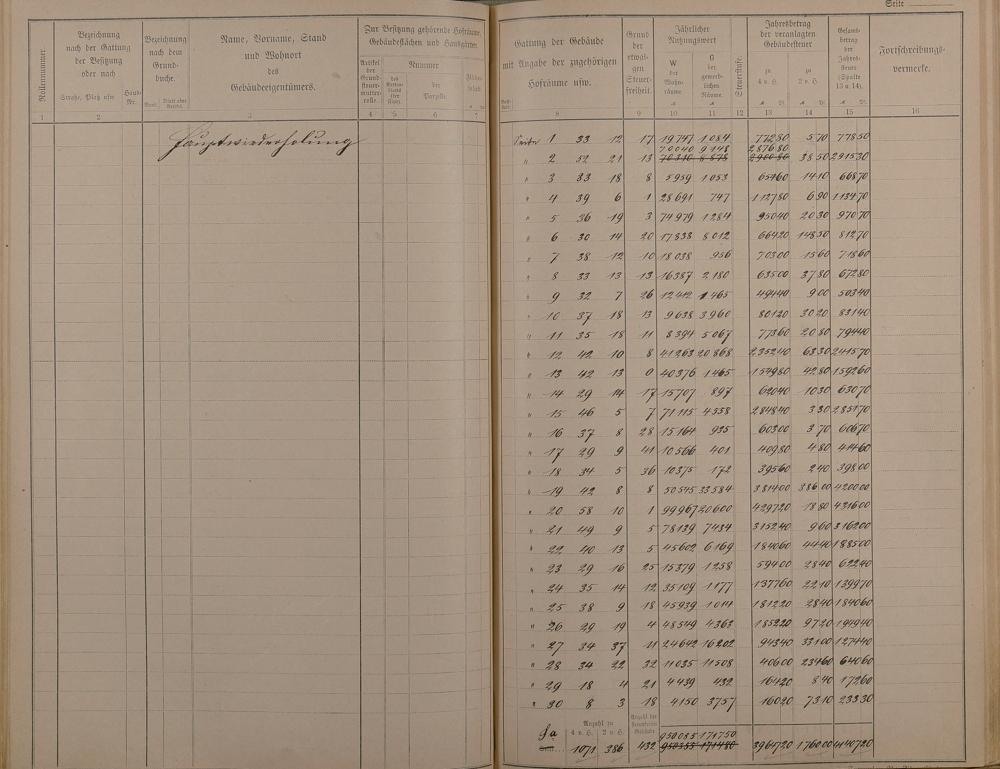 Seite
Rollennummer
Bezeichnung
nach der Gattung
der Besitzung
oder nach
Straße, Platz usw.
Haus-
Nr.
Bezeichnung
nach dem
Grund-
buche.
Name, Vorname, Stand
und Wohnort
des
Gebäudeeigentümers.
Zur Besitzung gehörende Hofräume,
Gebäudeflächen und Hausgärten.
Artikel
der
Grund-
steuer-
mutter-
rolle.
Nummer
der
Parzelle.
Gattung der Gebäude
mit Angabe der zugehörigen
Hofräume usw.
Grund
der
etwai-
gen
Steuer-
freiheit.
Jährlicher
Nutzungswert
W
der
Wohn-
räume
G
der
gewerb-
lichen
Räume.
Steuerstufe.
Jahresbetrag
der veranlagten
Gebäudesteuer
zu
4 v. H.
zu
2 v. H.
Gesamt-
betrag
der
Jahres-
steuer
(Spalte
13 u. 14).
Fortschreibungs-
vermerke.
1 2 3 4 5 6 7 8 9 10 11 12 13 14 15 16
Hauptwiederholung
Seite 1 33 12 17 19747 1084 77280 570 77850
70040 9148 28760
" 2 52 21 13 3850 291530
" 3 33 18 8 5959 1053 65460 1410 66870
" 4 39 6 1 28691 747 112780 690 113470
" 5 36 19 3 74979 1284 95040 2030 97070
" 6 30 14 20 17838 8012 66420 14850 81270
" 7 38 12 10 18038 956 70300 1560 71860
" 8 33 13 13 16387 2180 63500 3780 67280
" 9 32 7 26 12412 1465 49440 900 50340
" 10 37 18 13 9638 3960 80120 3020 83140
" 11 35 18 11 8394 5067 77360 2080 79440
" 12 42 10 8 41263 20868 235240 6330 241570
" 13 42 13 0 40376 1465 154980 4280 159260
" 14 29 14 17 15707 897 62040 1030 63070
" 15 46 5 7 71115 4558 284840 330 285170
" 16 37 8 28 15164 935 60300 370 60670
" 17 29 9 41 10566 401 40980 480 41460
" 18 34 5 36 10375 172 39560 240 39800
" 19 42 8 8 50545 33584 381400 38600 420000
" 20 58 10 1 99967 20600 429720 1880 431600
" 21 49 9 5 78139 7434 315240 960 316200
" 22 40 13 5 45602 6169 184060 4440 188500
" 23 29 16 25 15379 1258 59400 2840 62240
" 24 35 14 12 35109 1177 137760 2210 139970
" 25 38 9 18 45939 1014 181220 2840 184060
" 26 29 19 4 48549 4363 185220 9720 194940
" 27 34 37 11 24642 16202 94340 33100 127440
" 28 34 22 32 11035 11508 40600 23460 64060
" 29 18 4 21 4439 432 16420 840 17260
" 30 8 3 18 4150 3757 16020 7310 23330
Anzahl zu
4 v. H. 2 v. H.
Anzahl der
steuerfreien
Gebäude
950085 171750
Sa 1071 386 432 950355 171480 3964720 176000 4140720